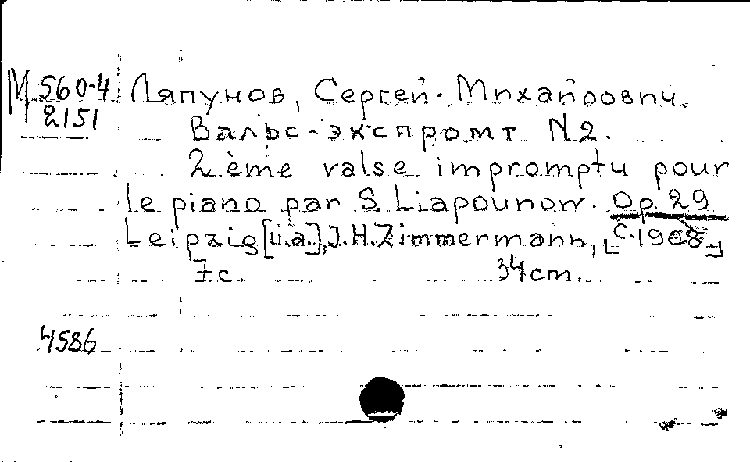 М 560-4 Ляпунов, Сергей Михайлович.
2151 Вальс-экспромт N2.
2ème valse impromptu pour
le piano par S. Liapounow. Op. 29
Leipzig [u.a.], J.H. Zimmermann, [c. 1908]
7 c. 34 cm.
4586